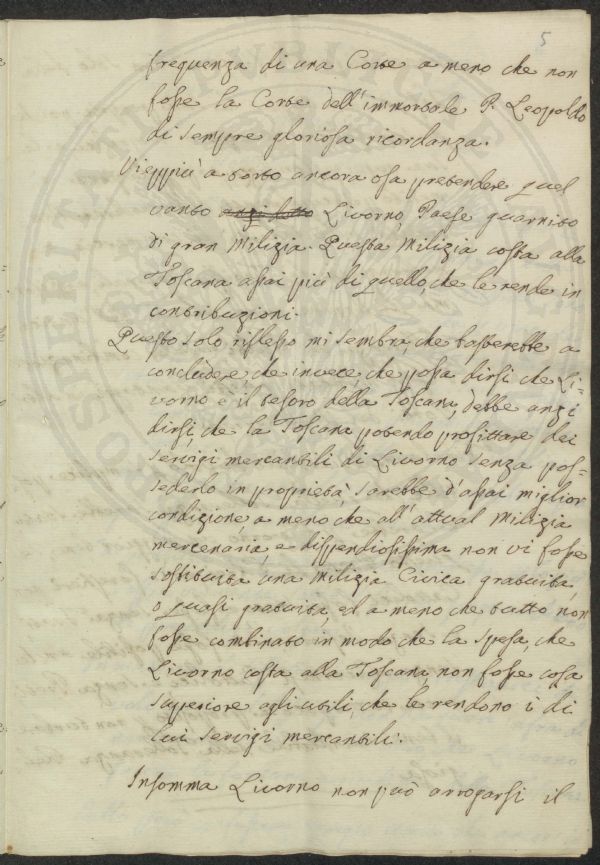 5
frequenza di una Corte a meno che non
fosse la Corte dell'immortale P. Leopoldo
di sempre gloriosa ricordanza.
Vieppiù a torto ancora osa pretendere quel
vanto Livorno, Paese guarnito
di gran Milizia. Questa Milizia costa alla
Toscana assai più di quello, che le rende in
contribuzioni.
Questo solo riflesso mi sembra, che basterebbe a
concludere, che invece, che possa dirsi che Li-
vorno è il tesoro della Toscana, debbe anzi
dirsi, che la Toscana potendo profittare dei
servigi mercantili di Livorno senza pos-
sederlo in proprietà, sarebbe d'assai miglior
condizione, a meno che all'attual Milizia
mercenaria, e dispendiosissima non vi fosse
sostituita una Milizia Civica gratuita,
o quasi gratuita, ed a meno che tutto non
fosse combinato in modo che la spesa, che
Livorno costa alla Toscana, non fosse cosa
superiore agli utili, che le rendono i di
lui servigi mercantili.
Insomma Livorno non può arrogarsi il